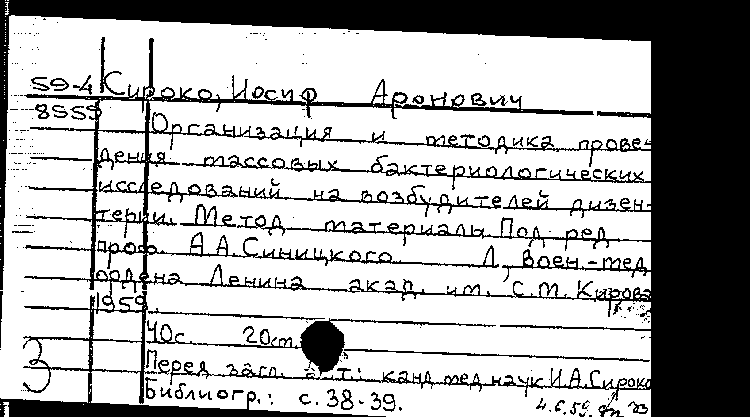 59-4 Сироко, Иосиф Аронович
8559
Организация и методика прове-
дения массовых бактериологических
исследований на возбудителей дизен-
терии. Метод материалы. Под ред
проф. А.А.Синицкого. Л., Воен-мед
ордена Ленина акад. им. С.М. Кирова
1959.
40с. 20см.
Перед загл. авт.: канд мед наук И.А.Сироко
Библиогр.: с. 38-39.
3
4.6.59.